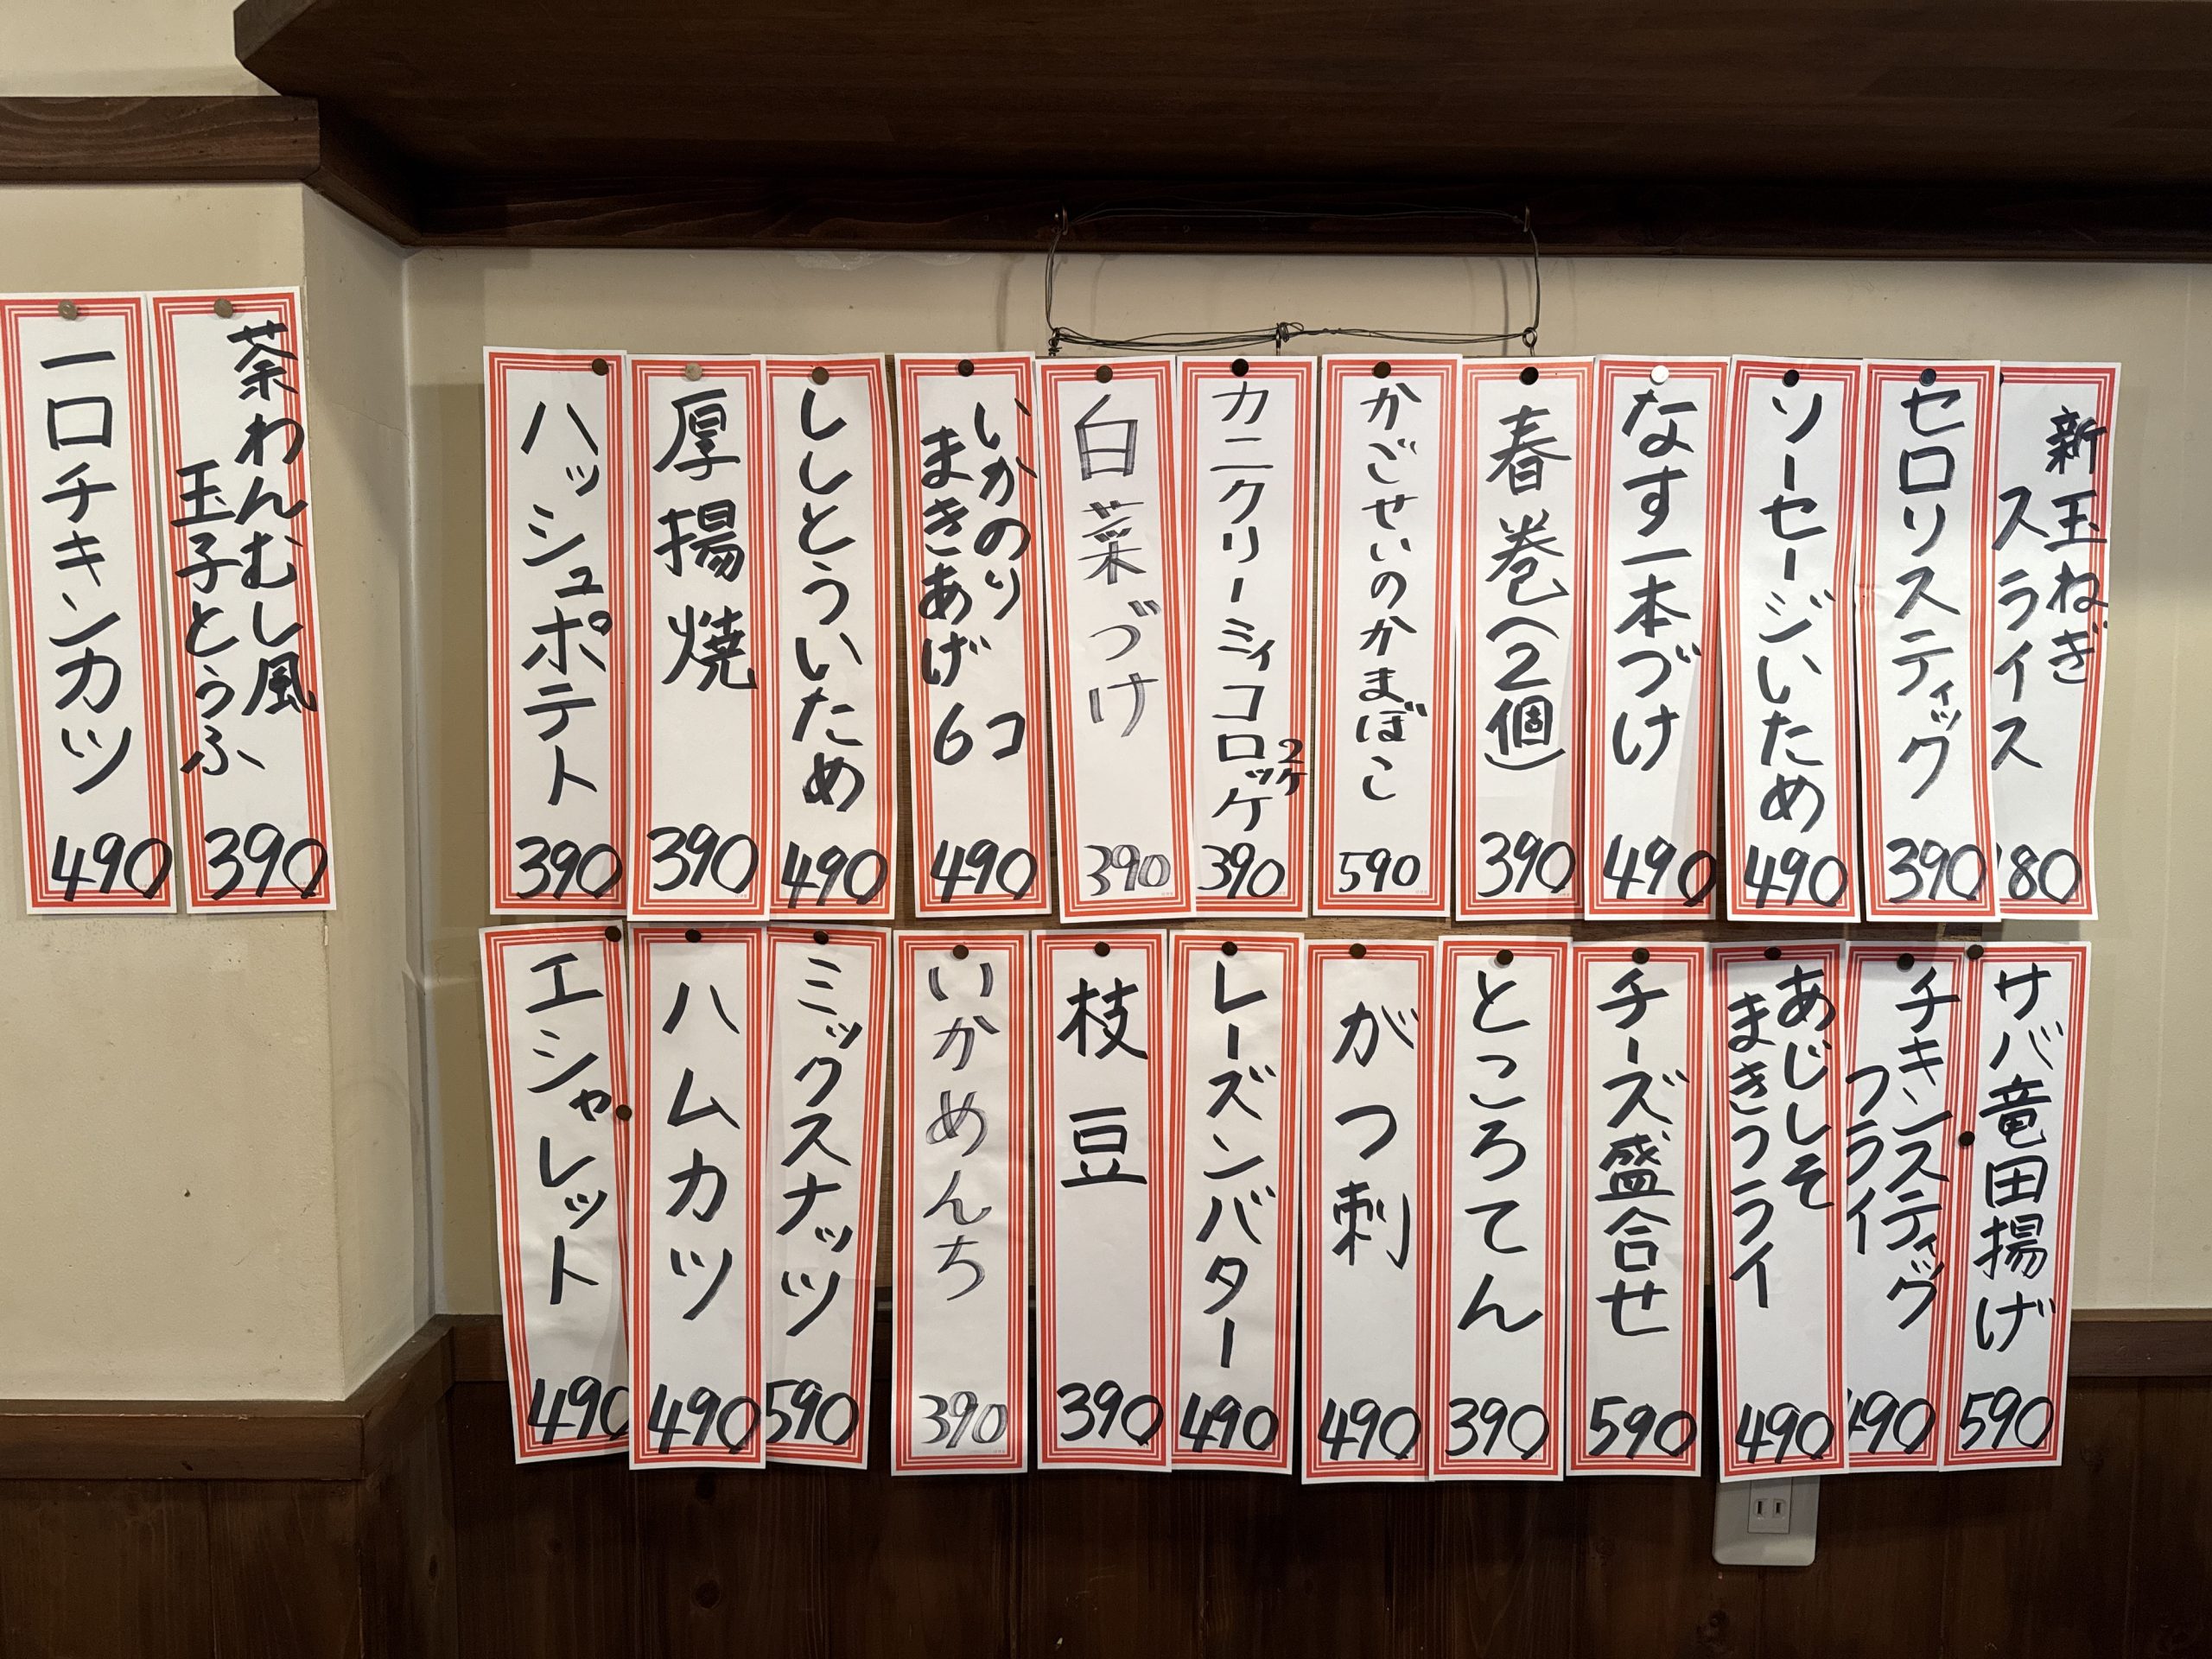 新玉ねぎ
スライス
180
セロリスティック
390
ソーセージいため
490
なす一本づけ
490
春巻(2個)
390
かごせいのかまぼこ
590
カニクリーミィコロッケ
2ケ
390
白菜づけ
390
いかのり
まきあげ6コ
490
ししとういため
490
厚揚焼
390
ハッシュポテト
390
茶わんむし風
玉子とうふ
390
一口チキンカツ
490
サバ竜田揚げ
590
チキンスティック
フライ
490
あじしそ
まきフライ
490
チーズ盛合せ
590
ところてん
390
がつ刺
490
レーズンバター
490
枝豆
390
いかめんち
390
ミックスナッツ
590
ハムカツ
490
エシャレット
490